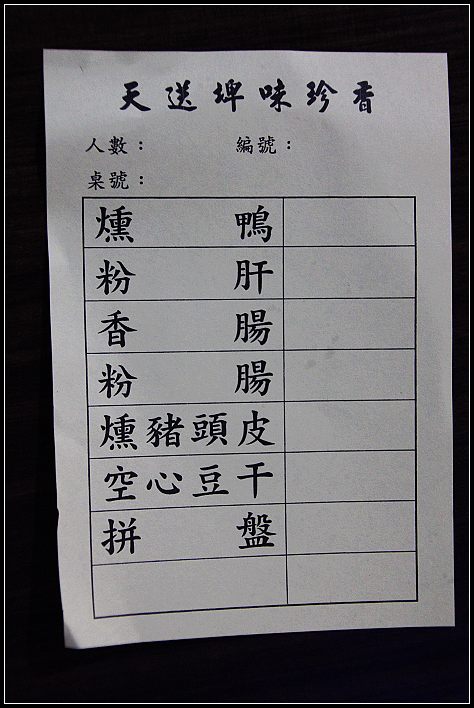 天送埤味珍香
人數： 編號：
桌號：
燻鴨
粉肝
香腸
粉腸
燻豬頭皮
空心豆干
拼盤